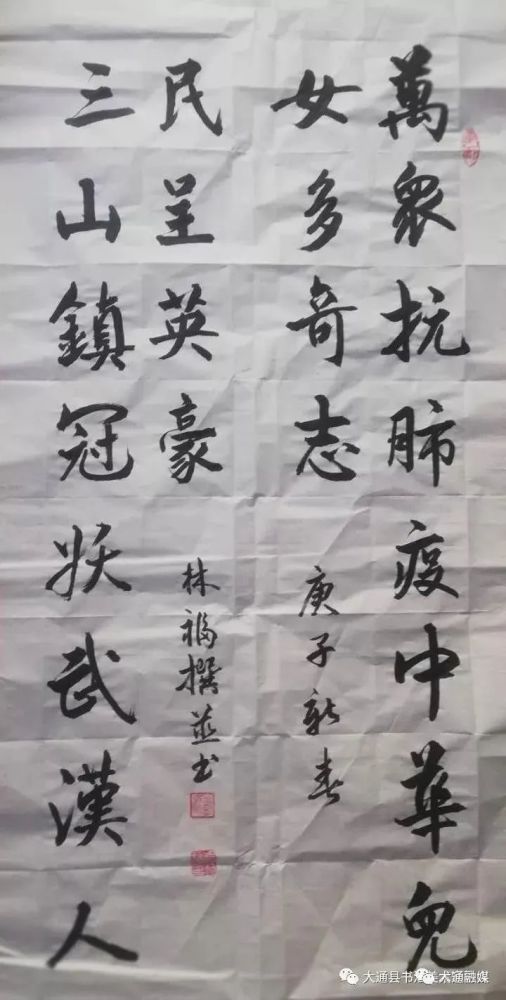 萬衆抗肺疫中華兒
女多奇志
庚子新春
三山鎮冠妖武漢人
民呈英豪
林福撰並书
大通县书法美术
大通融媒